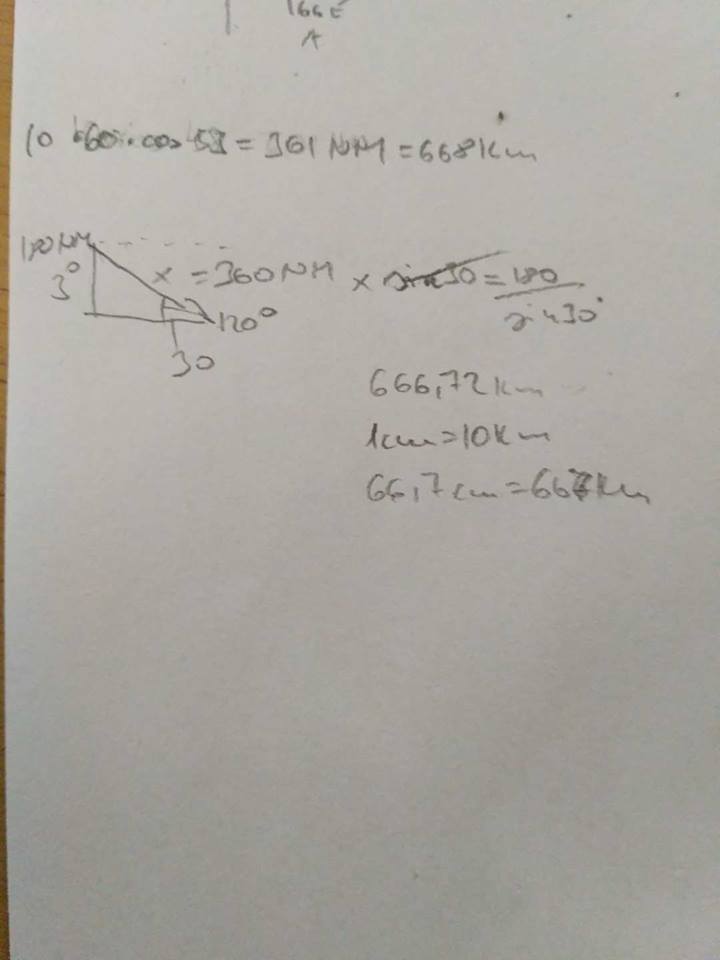 166 E
A
10 · 60 · cos 53 = 361 NM = 668 km
180 NM
3° x = 360 NM x sin 30 = 180
sin 30°
120°
30
666,72 km
1cm = 10 km
66,7 cm = 667 km